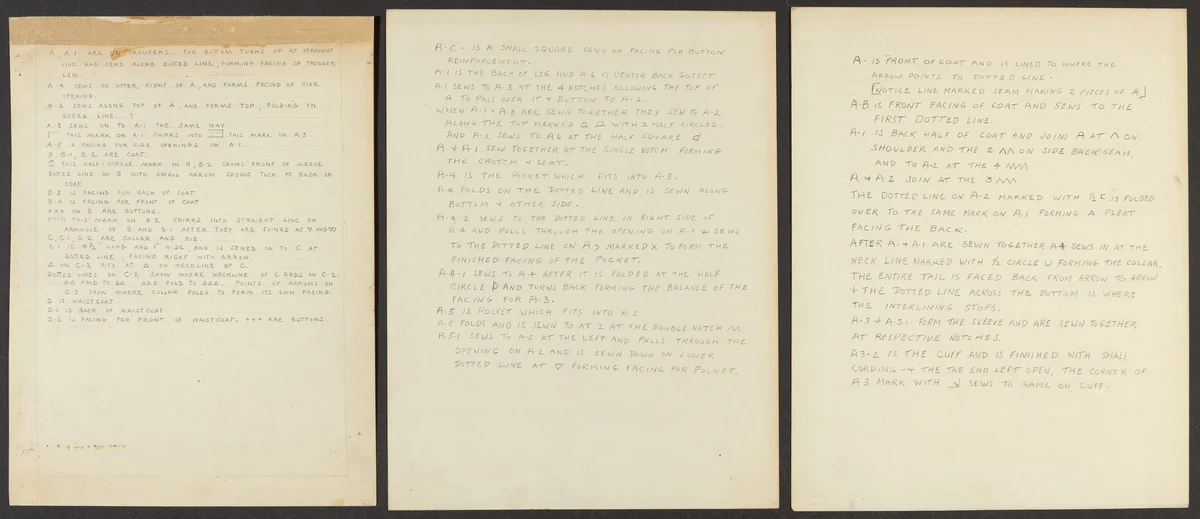 A, A-1 ARE ½ TROUSERS. THE BOTTOM TURNS UP AT STRAIGHT
LINE AND SEWS ALONG DOTTED LINE, FORMING FACING OF TROUSER
LEG.
A-4 SEWS ON UPPER RIGHT OF A, AND FORMS FACING OF SIDE
OPENING.
A-2 SEWS ALONG TOP OF A, AND FORMS TOP, FOLDING IN
DOTTED LINE.
A-3 SEWS ON TO A-1 THE SAME WAY.
THIS MARK ON A-1 SHIRRS INTO THIS MARK ON A-3.
A-5 IS FACING FOR SIDE OPENINGS ON A-1.
B, B-1, B-2 ARE COAT.
C THIS HALF-CIRCLE MARK ON B, B-2 SHOWS FRONT OF SLEEVE
DOTTED LINE ON B WITH SMALL ARROW SHOWS TUCK AT BACK OF
COAT.
B-3 IS FACING FOR BACK OF COAT
B-4 IS FACING FOR FRONT OF COAT
XXX ON B ARE BUTTONS.
THIS MARK ON B-2 SHIRRS INTO STRAIGHT LINE ON
ARMHOLE OF B AND B-1 AFTER THEY ARE JOINED AT ▽ AND ▽▽
C, C-1, C-2 ARE COLLAR AND BIB.
C-1 IS 4½" LONG AND 1" WIDE, AND IS SEWED ON TO C AT
DOTTED LINE, FACING RIGHT WITH ARROW.
∆ ON C-2 FITS AT ∆ ON NECKLINE OF C.
DOTTED LINES ON C-2 SHOW WHERE NECKLINE OF C ENDS ON C-2.
∆∆ FOLD TO ∆∆. ∆∆∆ FOLD TO ∆∆∆. POINTS OF ARROWS ON
C-2 SHOW WHERE COLLAR FOLDS TO FORM ITS OWN FACING.
D IS WAISTCOAT
D-1 IS BACK OF WAISTCOAT
D-2 IS FACING FOR FRONT OF WAISTCOAT. +++ ARE BUTTONS.
A-C- IS A SMALL SQUARE SEWN ON FACING FOR BUTTON
REINFORCEMENT.
A-1 IS THE BACK OF LEG AND A-6 IS CENTER BACK GUSSET
A-1 SEWS TO A-3 AT THE 4 NOTCHES ALLOWING THE TOP OF
A TO PASS OVER IT & BUTTON TO A-2.
WHEN A-1 & A-3 ARE SEWN TOGETHER THEY SEW TO A-2
ALONG THE TOP MARKED WITH 2 HALF CIRCLES.
AND A-2 SEWS TO A6 AT THE HALF SQUARE
A & A-1 SEW TOGETHER AT THE SINGLE NOTCH FORMING
THE CROTCH & SEAT.
A-4 IS THE POCKET WHICH FITS INTO A-3.
A-4 FOLDS ON THE DOTTED LINE AND IS SEWN ALONG
BOTTOM & OTHER SIDE.
A-4-2 SEWS TO THE DOTTED LINE ON RIGHT SIDE OF
A4 AND PULLS THROUGH THE OPENING ON A-3 & SEWS
TO THE DOTTED LINE ON A3 MARKED X TO FORM THE
FINISHED FACING OF THE POCKET.
A-4-1 SEWS TO A4 AFTER IT IS FOLDED AT THE HALF
CIRCLE AND TURNS BACK FORMING THE BALANCE OF THE
FACING FOR A-3.
A-5 IS POCKET WHICH FITS INTO A-2
A-5 FOLDS AND IS SEWN TO AT 2 AT THE DOUBLE NOTCH ^^
A-5-1 SEWS TO A-5 AT THE LEFT AND PULLS THROUGH THE
OPENING ON A-2 AND IS SEWN DOWN ON LOWER
DOTTED LINE AT ▽ FORMING FACING FOR POCKET.
A- IS FRONT OF COAT AND IS LINED TO WHERE THE
ARROW POINTS TO DOTTED LINE.
[NOTICE LINE MARKED SEAM MAKING 2 PIECES OF A]
A-B IS FRONT FACING OF COAT AND SEWS TO THE
FIRST DOTTED LINE.
A-1 IS BACK HALF OF COAT AND JOINS A AT ^ ON
SHOULDER AND THE 2 ^^ ON SIDE BACK SEAM,
AND TO A-2 AT THE 4 ^^^^
A & A-2 JOIN AT THE 3 ^^^
THE DOTTED LINE ON A-2 MARKED WITH ½ C IS FOLDED
OVER TO THE SAME MARK ON A-1 FORMING A PLEAT
FACING THE BACK.
AFTER A & A-1 ARE SEWN TOGETHER A4 SEWS IN AT THE
NECK LINE MARKED WITH ½ CIRCLE U FORMING THE COLLAR.
THE ENTIRE TAIL IS FACED BACK FROM ARROW TO ARROW
& THE DOTTED LINE ACROSS THE BOTTOM IS WHERE
THE INTERLINING STOPS.
A-3 & A-3-1 FORM THE SLEEVE AND ARE SEWN TOGETHER
AT RESPECTIVE NOTCHES.
A3-2 IS THE CUFF AND IS FINISHED WITH SMALL
CORDING & THE TAB END LEFT OPEN, THE CORNER OF
A3 MARK WITH SEWS TO SAME ON CUFF.